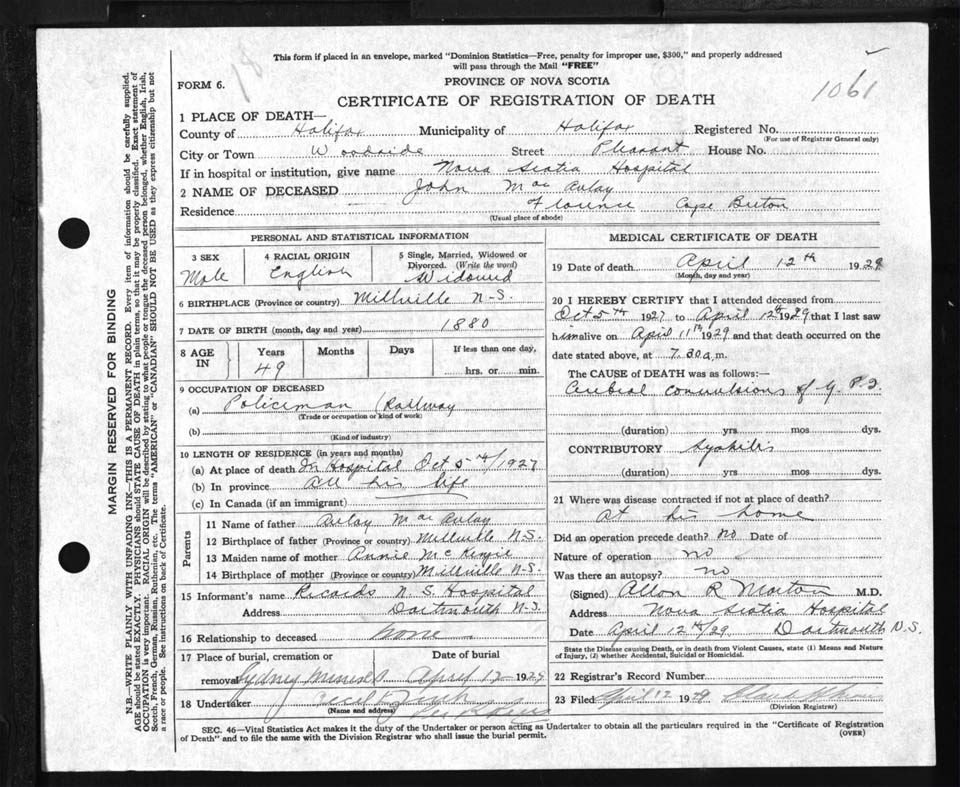 This form if placed in an envelope, marked "Dominion Statistics—Free, penalty for improper use, $300," and properly addressed
will pass through the Mail "FREE"
18
FORM 6.
PROVINCE OF NOVA SCOTIA
1061
CERTIFICATE OF REGISTRATION OF DEATH
1 PLACE OF DEATH—
County of Halifax Municipality of Halifax Registered No.
(For use of Registrar General only)
City or Town Woodside Street Pleasant House No.
If in hospital or institution, give name Nova Scotia Hospital
2 NAME OF DECEASED John Mac Aulay
Residence Florence Cape Breton
(Usual place of abode)
PERSONAL AND STATISTICAL INFORMATION
3 SEX Male
4 RACIAL ORIGIN English
5 Single, Married, Widowed or Divorced. (Write the word) Widowed
6 BIRTHPLACE (Province or country) Millville N-S.
7 DATE OF BIRTH (month, day and year) 1880
8 AGE IN Years 49 Months Days If less than one day, hrs. or min.
9 OCCUPATION OF DECEASED
(a) Policeman (Railway
(Trade or occupation or kind of work)
(b)
(Kind of industry)
10 LENGTH OF RESIDENCE (in years and months)
(a) At place of death In Hospital Oct 5th/1927
(b) In province all his life
(c) In Canada (if an immigrant)
Parents
11 Name of father Aulay Mac Aulay
12 Birthplace of father (Province or country) Millville N.S.
13 Maiden name of mother Annie McKenzie
14 Birthplace of mother (Province or country) Millville N-S.
15 Informant's name Records N. S. Hospital
Address Dartmouth N-S.
16 Relationship to deceased none
17 Place of burial, cremation or removal Sydney Mines Date of burial April 1929
18 Undertaker
(Name and address)
MEDICAL CERTIFICATE OF DEATH
19 Date of death April 12th 1929
(Month, day and year)
20 I HEREBY CERTIFY that I attended deceased from
Oct 5th 1927 to April 12th 1929 that I last saw
him alive on April 11th 1929 and that death occurred on the
date stated above, at 7.30 a.m.
The CAUSE of DEATH was as follows:—
Cerebral convulsions of G. P. I.
(duration) yrs mos dys.
CONTRIBUTORY Syphilis
(duration) yrs. mos dys.
21 Where was disease contracted if not at place of death?
At his home
Did an operation precede death? no Date of
Nature of operation no
Was there an autopsy? no
(Signed) Allan R Morton M.D.
Address Nova Scotia Hospital
Date April 12th/29. Dartmouth N.S.
State the Disease causing Death, or in death from Violent Causes, state (1) Means and Nature
of Injury, (2) whether Accidental, Suicidal or Homicidal.
22 Registrar's Record Number
23 Filed April 12 1929
(Division Registrar)
SEC. 46—Vital Statistics Act makes it the duty of the Undertaker or person acting as Undertaker to obtain all the particulars required in the "Certificate of Registration
of Death" and to file the same with the Division Registrar who shall issue the burial permit.
(OVER)
MARGIN RESERVED FOR BINDING
N.B.—WRITE PLAINLY WITH UNFADING INK—THIS IS A PERMANENT RECORD. Every item of information should be carefully supplied.
AGE should be stated EXACTLY. PHYSICIANS should STATE CAUSE OF DEATH in plain terms, so that it may be properly classified. Exact statement of
OCCUPATION is very important. RACIAL ORIGIN will be described by stating to what people or tongue the deceased person belonged, whether English, Irish,
Scotch, French, German, Russian, Ruthenian, etc. The terms "AMERICAN" or "CANADIAN" SHOULD NOT BE USED as they express citizenship but not
a race or people. See instructions on back of Certificate.